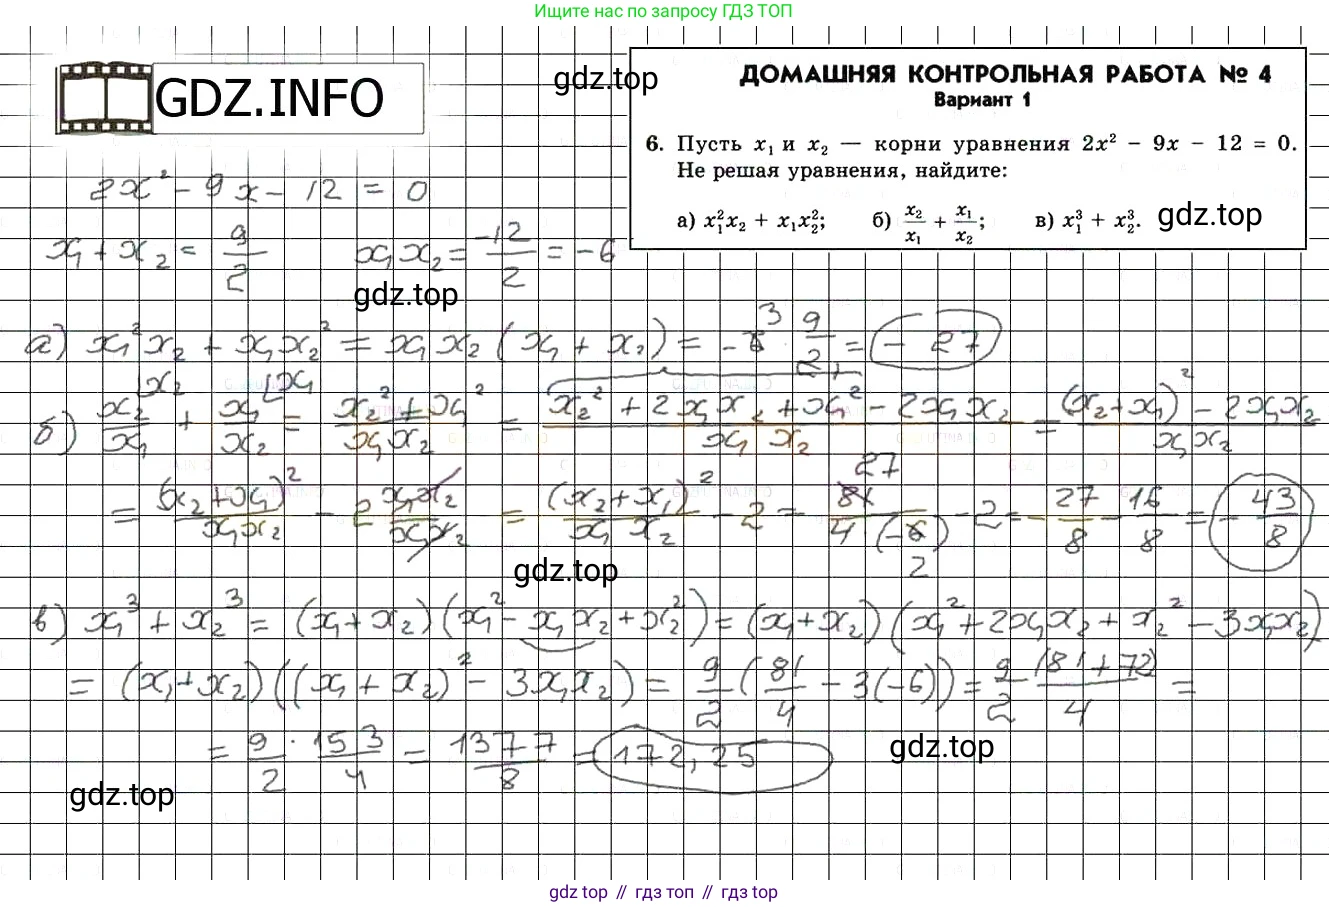 Ищите нас по запросу ГДЗ ТОП
GDZ.INFO
gdz.top
ДОМАШНЯЯ КОНТРОЛЬНАЯ РАБОТА № 4
Вариант 1
6. Пусть x₁ и x₂ — корни уравнения 2x² - 9x - 12 = 0.
Не решая уравнения, найдите:
а) x₁²x₂ + x₁x₂²; б) x₂/x₁ + x₁/x₂; в) x₁³ + x₂³.
gdz.top
2x² - 9x - 12 = 0
x₁ + x₂ = 9/2 x₁x₂ = -12/2 = -6
gdz.top
а) x₁²x₂ + x₁x₂² = x₁x₂(x₁ + x₂) = -6³ · 9/2 = -27
б) x₂/x₁ + x₁/x₂ = (x₂² + x₁²)/(x₁x₂) = (x₂² + 2x₁x₂ + x₁² - 2x₁x₂)/(x₁x₂) = ((x₂+x₁)² - 2x₁x₂)/(x₁x₂)
= (x₂+x₁)²/(x₁x₂) - 2 x₁x₂/(x₁x₂) = (x₂+x₁)²/(x₁x₂) - 2 = 81 27/(4·(-6) 2) - 2 = -27/8 - 16/8 = -43/8
gdz.top
в) x₁³ + x₂³ = (x₁+x₂)(x₁² - x₁x₂ + x₂²) = (x₁+x₂)(x₁² + 2x₁x₂ + x₂² - 3x₁x₂)
= (x₁+x₂)((x₁+x₂)² - 3x₁x₂) = 9/2 (81/4 - 3(-6)) = 9/2 (81+72)/4 =
= 9/2 · 153/4 = 1377/8 = 172,25
gdz.top
gdz.top
gdz top // гдз топ // гдз top